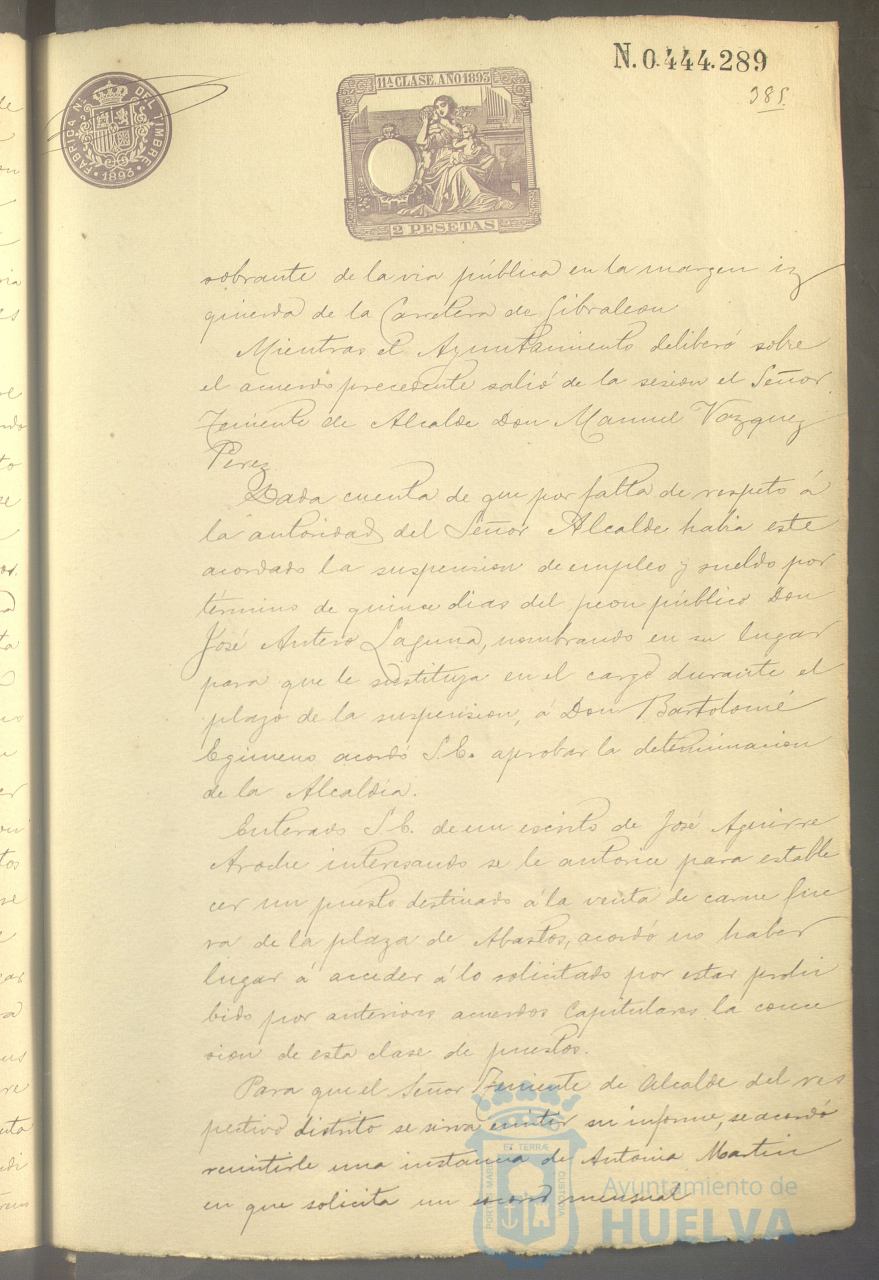 N. 0.444.289
385.
FABRICA N. DEL TIMBRE
1893
11ª CLASE. AÑO 1893
2 PESETAS
sobrante de la via pública en la margen iz
quierda de la Carretera de Gibraleon
Mientras el Ayuntamiento deliberó sobre
el acuerdo precedente salió de la sesion el Señor
Teniente de Alcalde Don Manuel Vazquez
Perez
Dada cuenta de que por falta de respeto á
la autoridad del Señor Alcalde habia este
acordado la suspension de empleo y sueldo por
término de quince dias del peon público Don
José Antero Laguna, nombrando en su lugar
para que le sustituya en el cargo durante el
plazo de la suspension, á Don Bartolomé
Egimeno acordó S.E. aprobar la determinacion
de la Alcaldia.
Enterado S.E. de un escrito de José Aguirre
Aroche interesando se le autorice para estable
cer un puesto destinado á la venta de carne fue
ra de la plaza de Abastos, acordó no haber
lugar á acceder á lo solicitado por estar prohi
bido por anteriores acuerdos Capitulares la conce
sion de esta clase de puestos.
Para que el Señor Teniente de Alcalde del res
pectivo distrito se sirva emitir su informe, se acordó
remitirle una instancia de Antonia Martin
en que solicita un socorro mensual
PORTUS MARIS ET TERRAE CUSTODIA
Ayuntamiento de
HUELVA